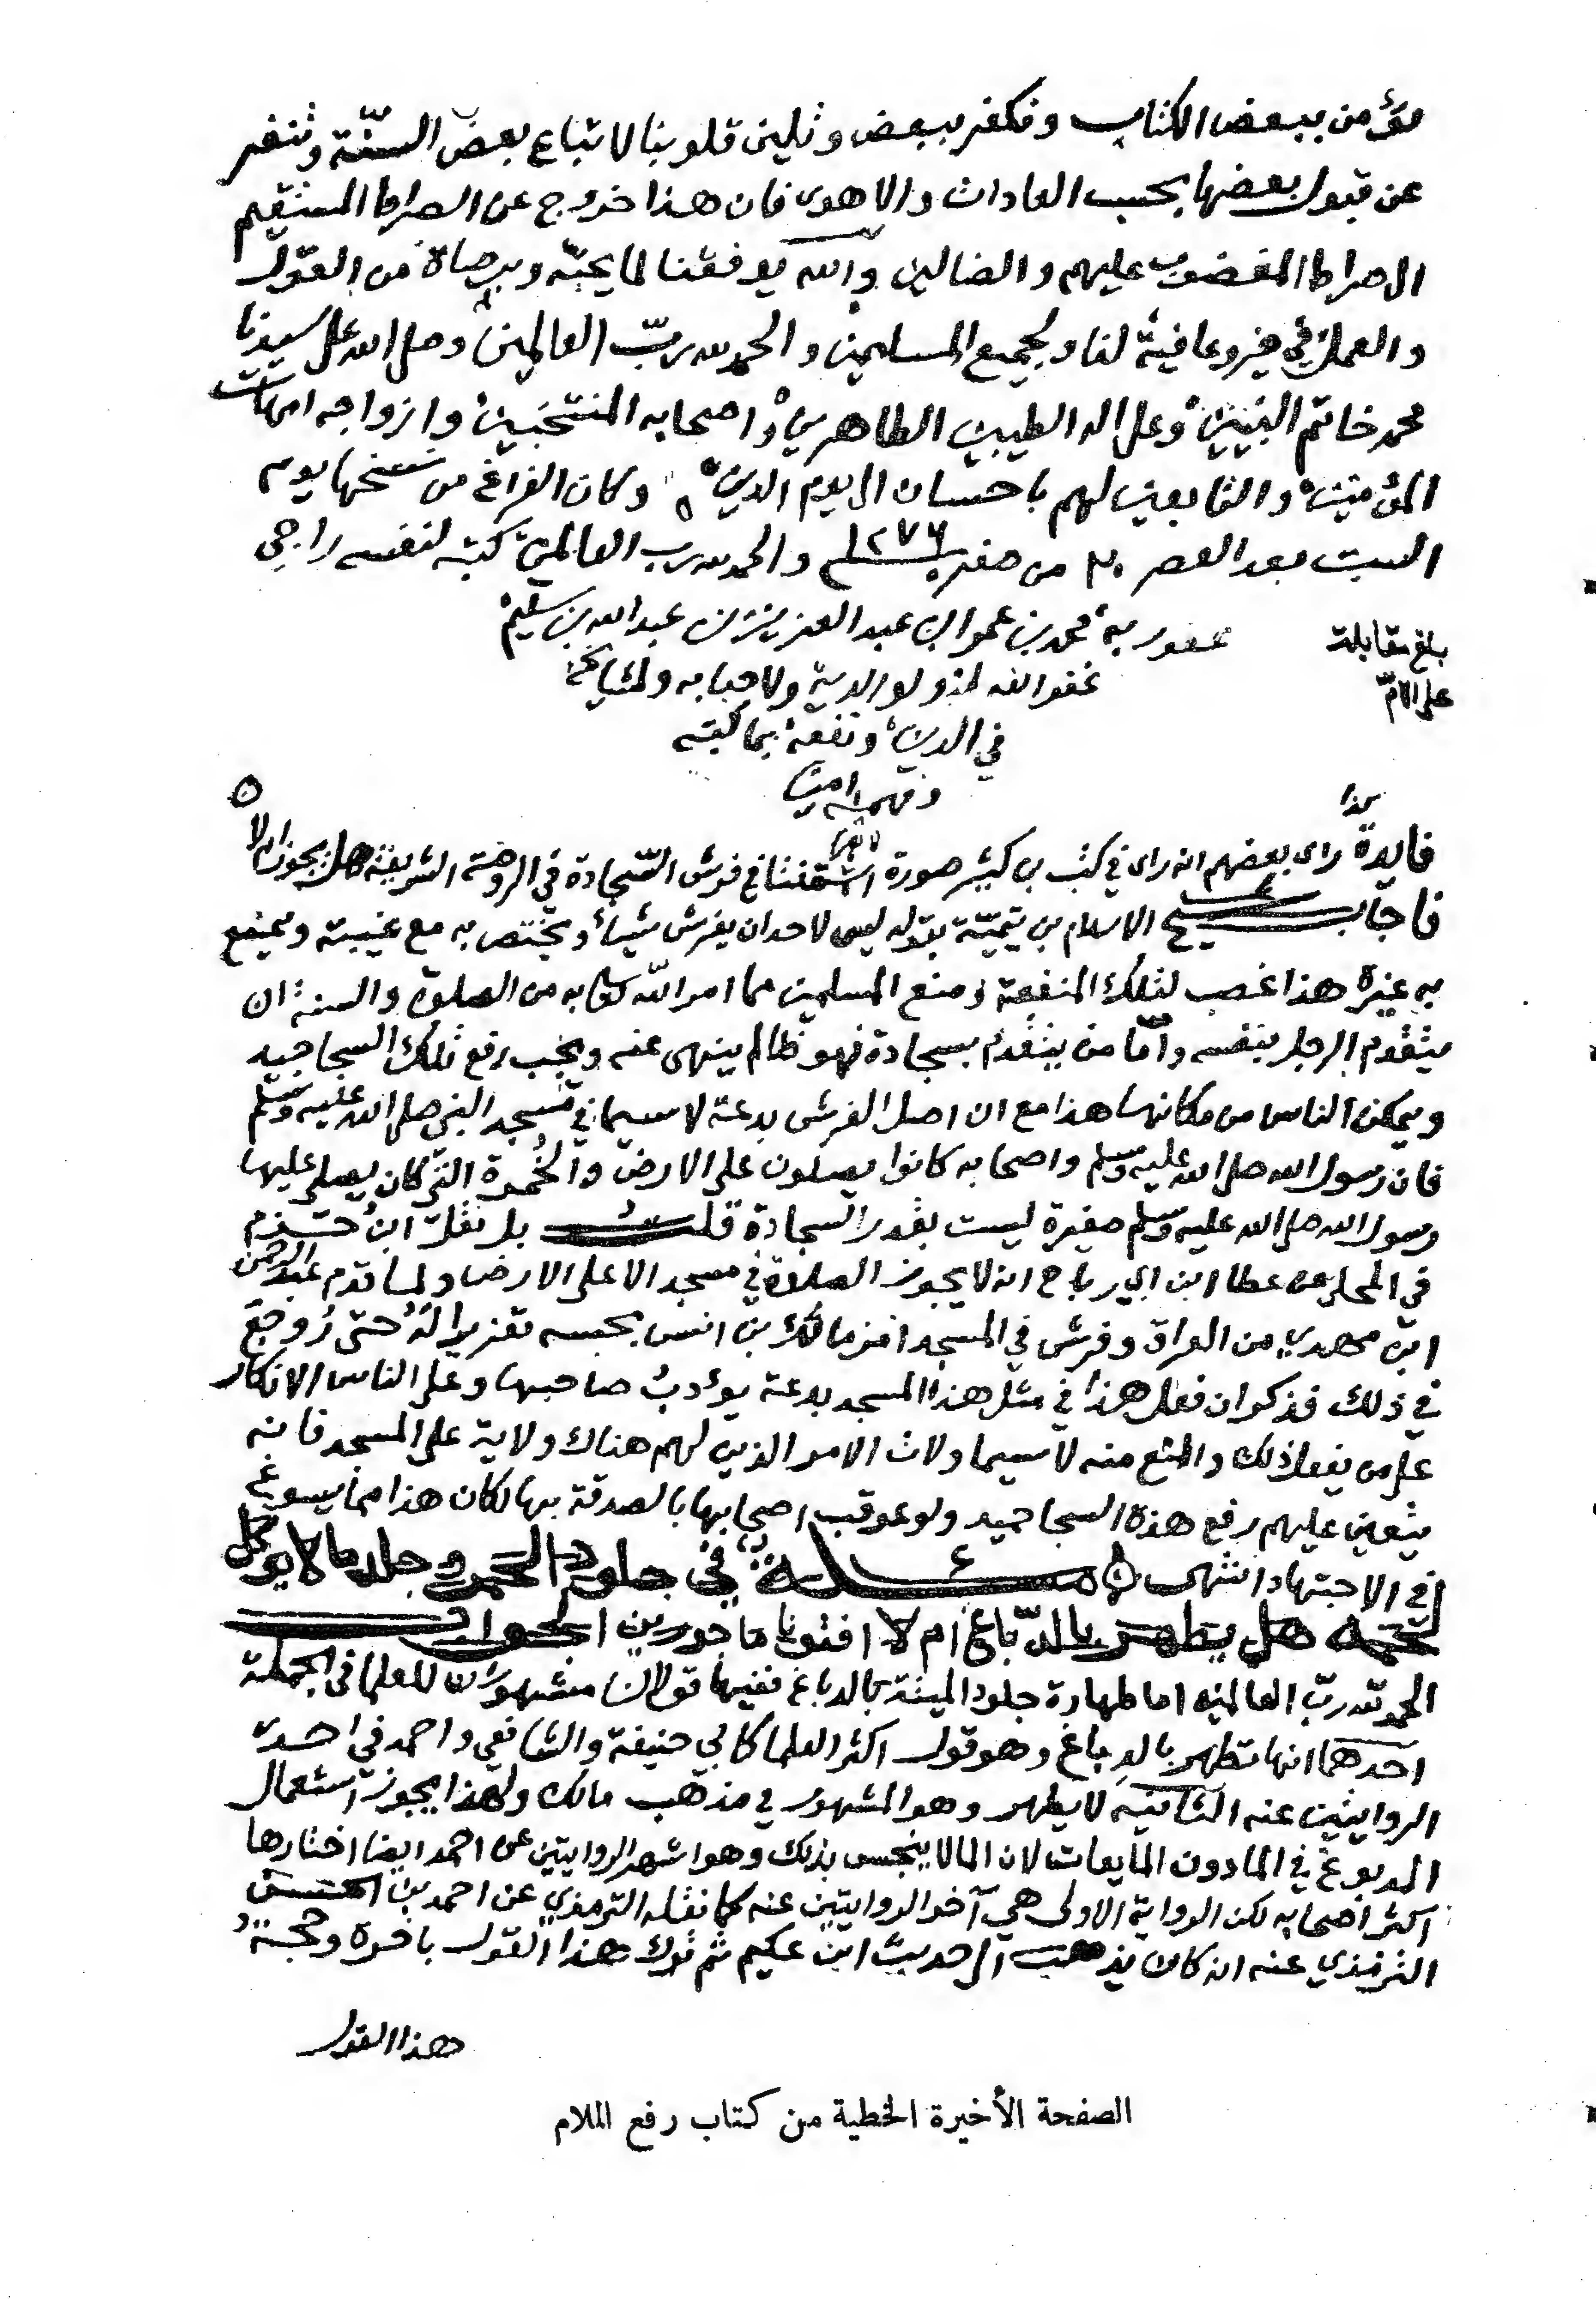 نؤمن ببعض الكتاب ونكفر ببعض وتلين قلوبنا لاتباع بعض السنّة وتنفر
عن قبول بعضها بحسب العادات والاهوى فان هذا خروج عن الصراط المستقيم
الى صراط المغضوب عليهم والضالين والله يوفقنا لما يحبّه ويرضاه من القول
والعمل في خير وعافية لنا ولجميع المسلمين والحمد لله ربّ العالمين وصلى الله على سيدنا
محمد خاتم النبيين وعلى اله الطيبين الطاهرين واصحابه المنتخبين وازواجه امهات
المؤمنين والتابعين لهم باحسان الى يوم الدين وكان الفراغ من نسخها يوم
السبت بعد العصر ٢٠ من صفر ١٢٧٦ والحمد لله رب العالمين كتبه لنفسه راجي
عفو ربه محمد بن عمر ال بن عبد العزيز بن عبد الله بن سليم
بلغ مقابلة
على الامّ
غفر الله له ولوالديه ولاحبابه ولمشايخه
في الدين ونفعه بما كتبه
وفهمه امين
فايدة راى بعضهم انه راى في كتب بن كثير صورة استفتنا في فرش السّجادة في الروضة الشريفة هل يجوز ام لا
فاجاب شيخ الاسلام بن تيميّة بقوله ليس لاحد ان يفرش شياً ويختص به مع غيبته ويمنع
به غيره هذا غصب لتلك المنفعة ومنع المسلمين مما امر الله تعالى به من الصلوة والسنة ان
يتقدم الرجل بنفسه وامّا من يتقدم بسجادة فهو ظالم ينهى عنه ويجب رفع تلك السجاجيد
ويمكن الناس من مكانها هذا مع ان اصل الفرش بدعة لاسيما في مسجد النبي صلى الله عليه وسلم
فان رسول الله صلى الله عليه وسلم واصحابه كانوا يصلون على الارض والخُمرة التي كان يصلى عليها
رسول الله صلى الله عليه وسلم صغيرة ليست بقدر السجادة قلت بل نقل ابن حزم
في المحلى عن عطا ابن ابي رباح انه لا يجوز الصلاة في مسجد الا على الارض ولما قدم عبد الرحمن
ابن مهدي من العراق وفرش في المسجد امر مالك بن انس بحبسه تعزيرا له حتى رُوجع
في ذلك فذكر ان فعل هذا في مثل هذا المسجد بدعة يؤدبُ صاحبها وعلى الناس الانكار
على من يفعل ذلك والمنع منه لاسيما ولاة الامر الذين لهم هناك ولاية على المسجد فانه
يتعين عليهم رفع هذه السجاجيد ولو عوقب اصحابها بالصدقة بها لكان هذا مما يسوغ
في الاجتهاد انتهى مسئلة في جلود الحمر وجلد ما لا يوكل
لحمه هل يطهر بالدّباغ ام لا افتونا ماجورين الجواب
الحمد لله ربّ العالمين اما طهارة جلود الميتة بالدباغ ففيها قولان مشهوران للعلما في الجملة
احدهما انها تطهر بالدباغ وهو قول اكثر العلما كابي حنيفة والشافعي واحمد في احدى
الروايتين عنه الثانيه لا يطهر وهو المشهور في مذهب مالك ولهذا يجوز استعمال
المدبوغ في الما دون المايعات لان الما لا ينجس بذلك وهو اشهر الروايتين عن احمد ايضا اختارها
اكثر اصحابه لكن الرواية الاولى هي آخر الروايتين عنه كما نقله الترمذي عن احمد بن الحسن
الترمذي عنه انه كان يذهب الى حديث ابن عكيم ثم ترك هذا القول باخرة وحجة
هذا القول
الصفحة الأخيرة الخطية من كتاب رفع الملام